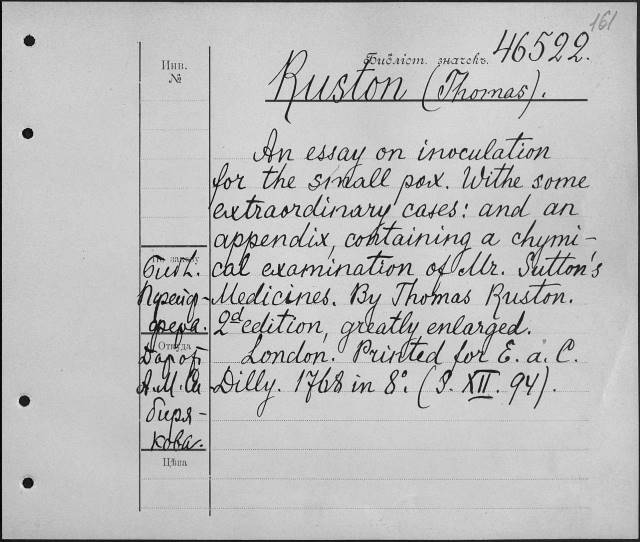 161
Библіот. значекъ. 46522.
Инв.
№
Ruston (Thomas).
An essay on inoculation
for the small pox. Withe some
extraordinary cases: and an
appendix, containing a chymi-
cal examination of Mr. Sutton's
Medicines. By Thomas Ruston.
2d edition, greatly enlarged.
London. Printed for E. a. C.
Dilly. 1768 in 8°. (S. XII. 94).
Библ.
Пфейф-
фера.
Откуда
Дар от
А. М. Си
биря-
кова.
Цѣна